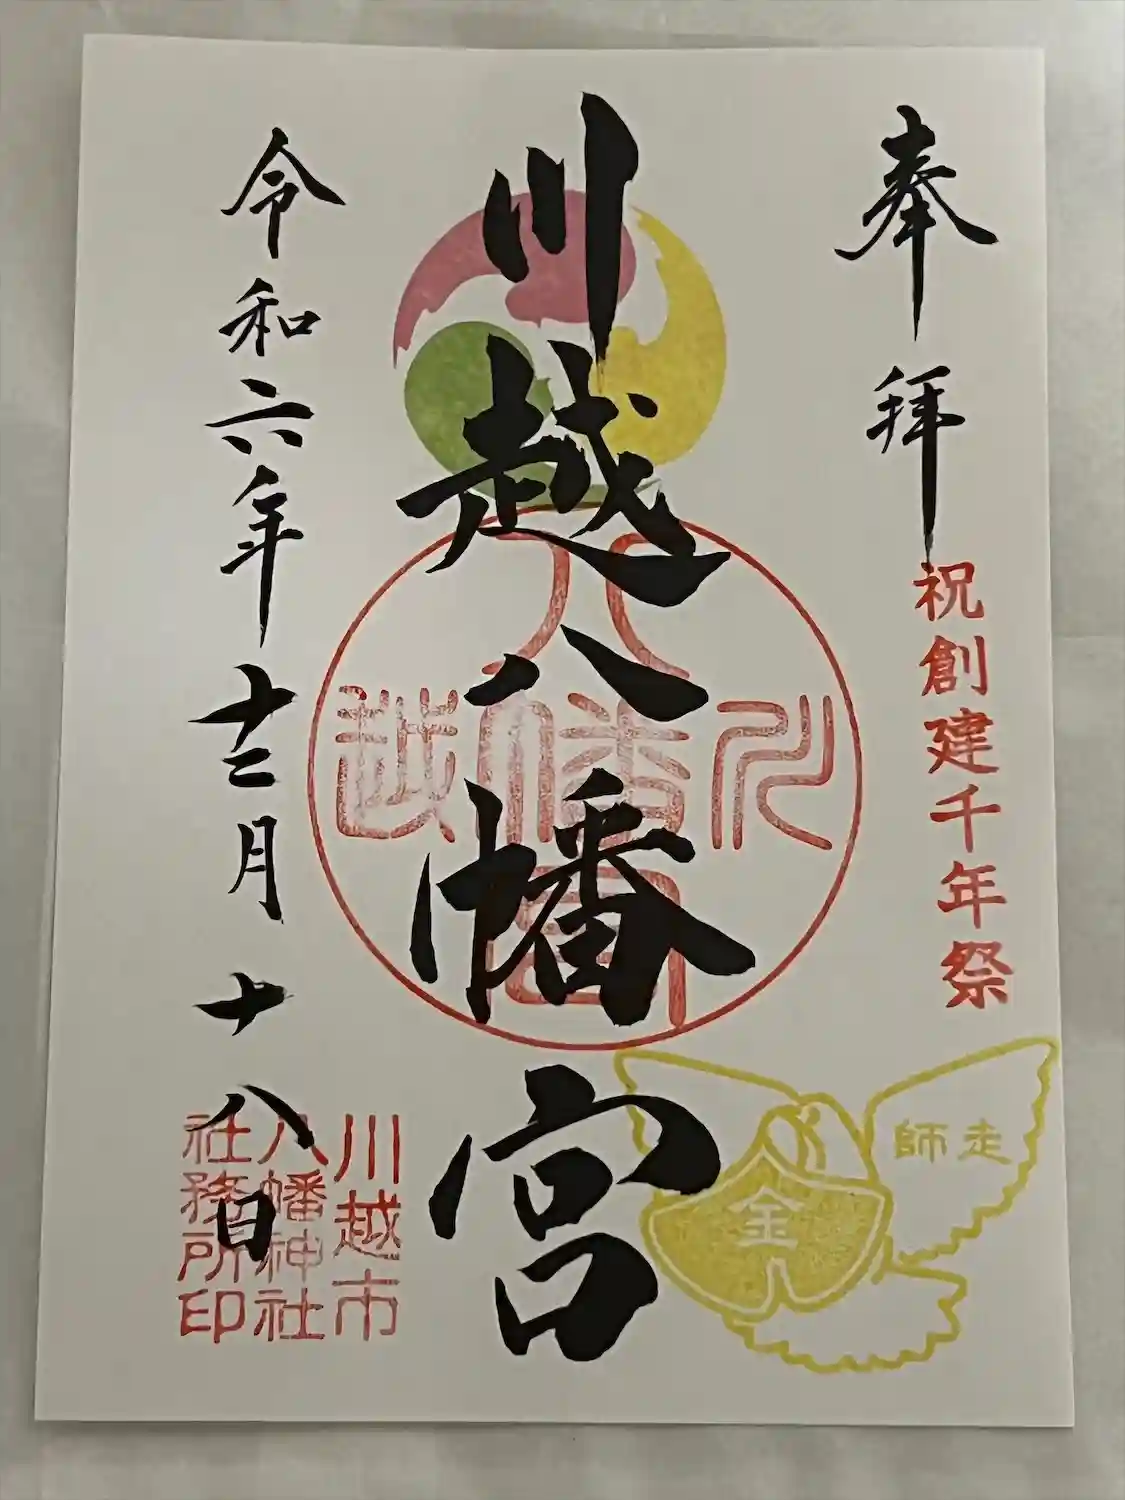 奉拝
祝創建千年祭
川越八幡宮
川越
八幡宮
令和六年十二月十八日
川越市
八幡神社
社務所印
師走
金